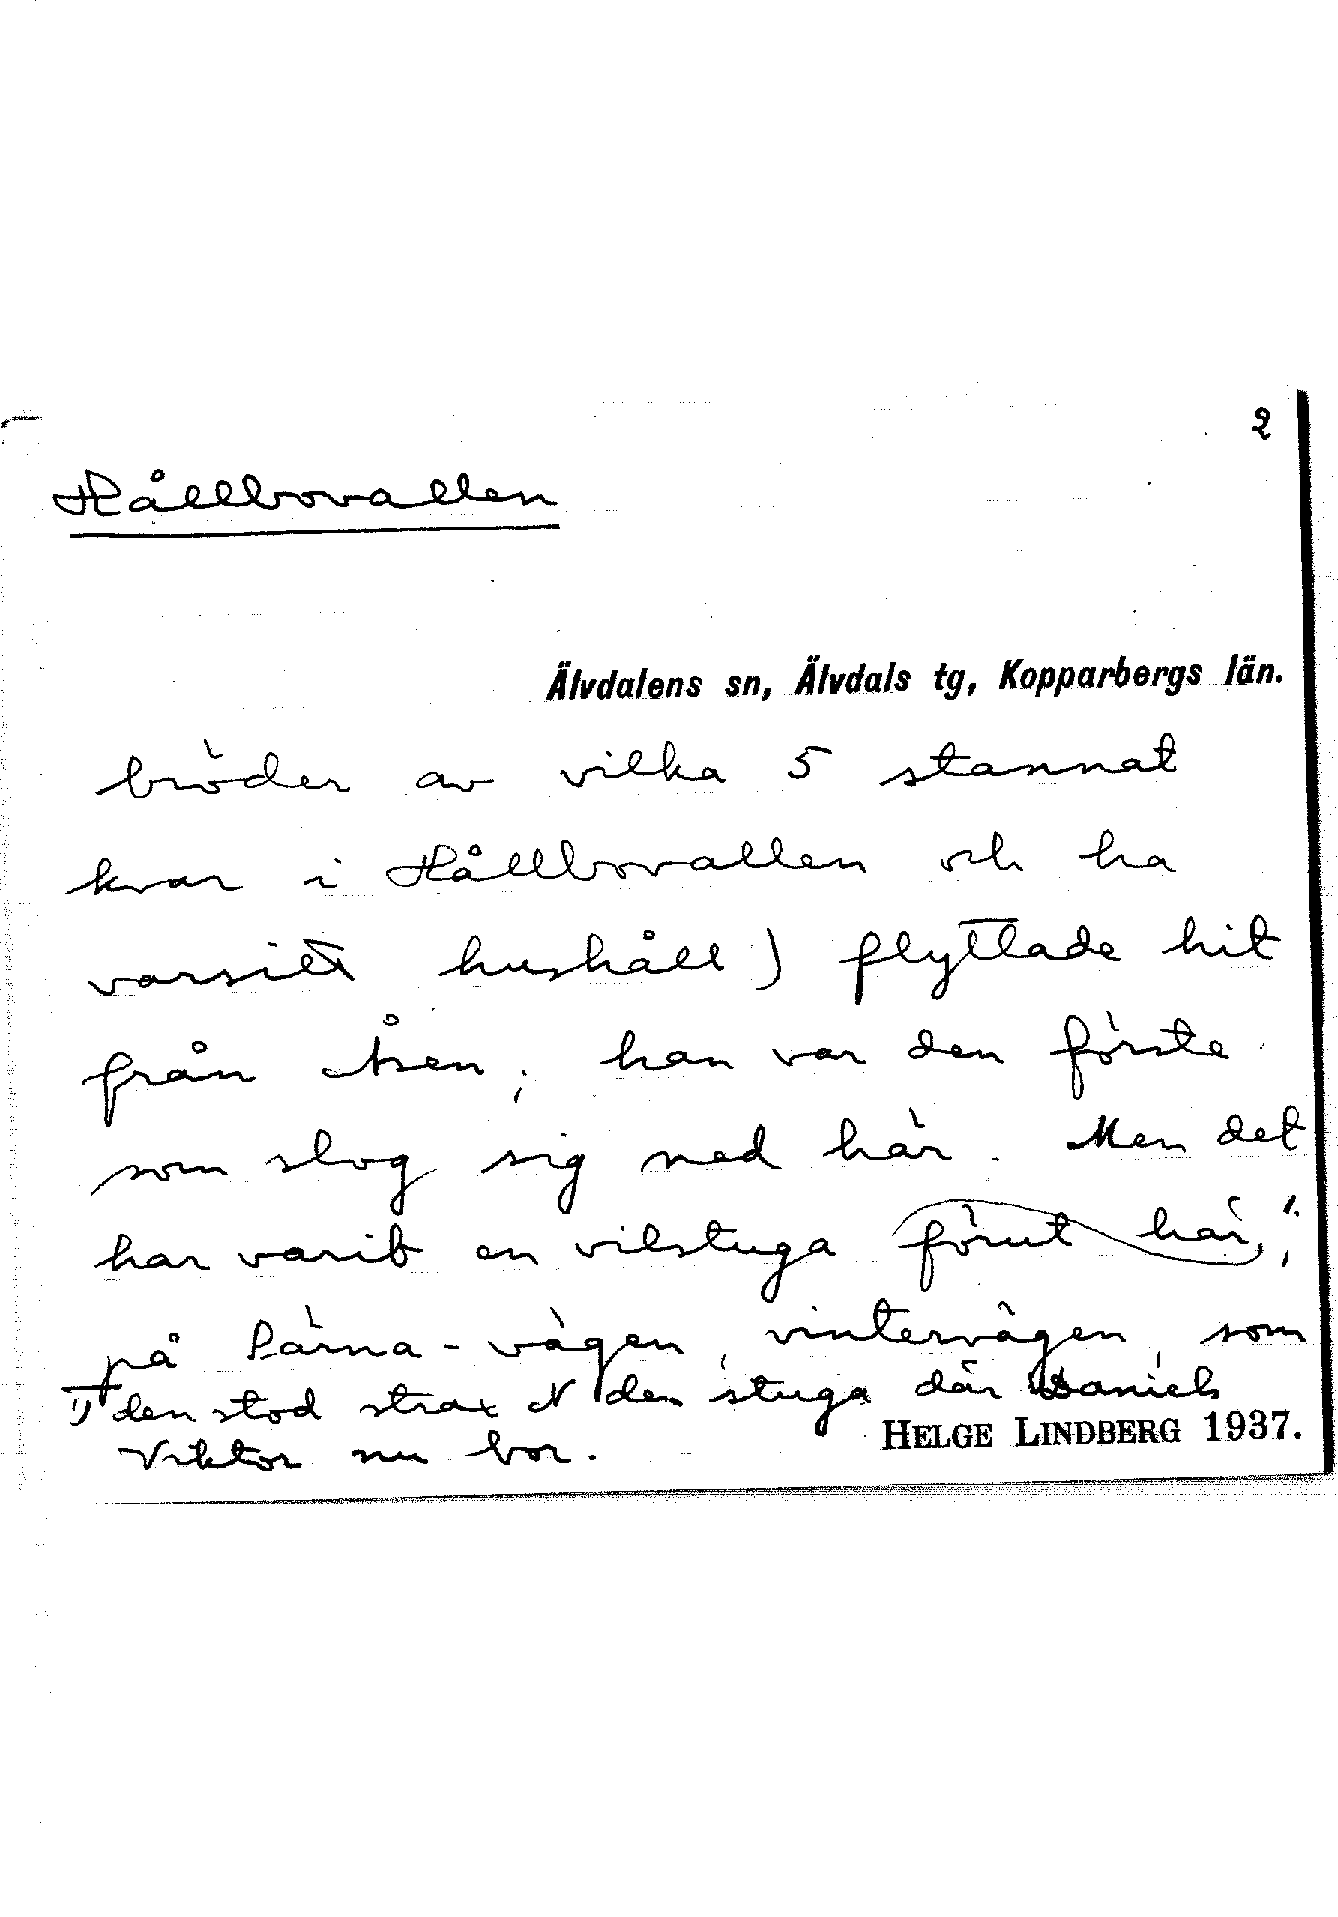 2
Hållbovallen
Älvdalens sn, Älvdals tg, Kopparbergs län.
bröder av vilka 5 stannat
kvar i Hållbovallen och ha
varsitt hushåll) flyttade hit
från Åsen; han var den förste
som slog sig ned här. Men det
har varit en vilstuga förut här
på Särna-vägen, vintervägen, som
den stod strax N den stuga där Daniels
Viktor nu bor.
HELGE LINDBERG 1937.